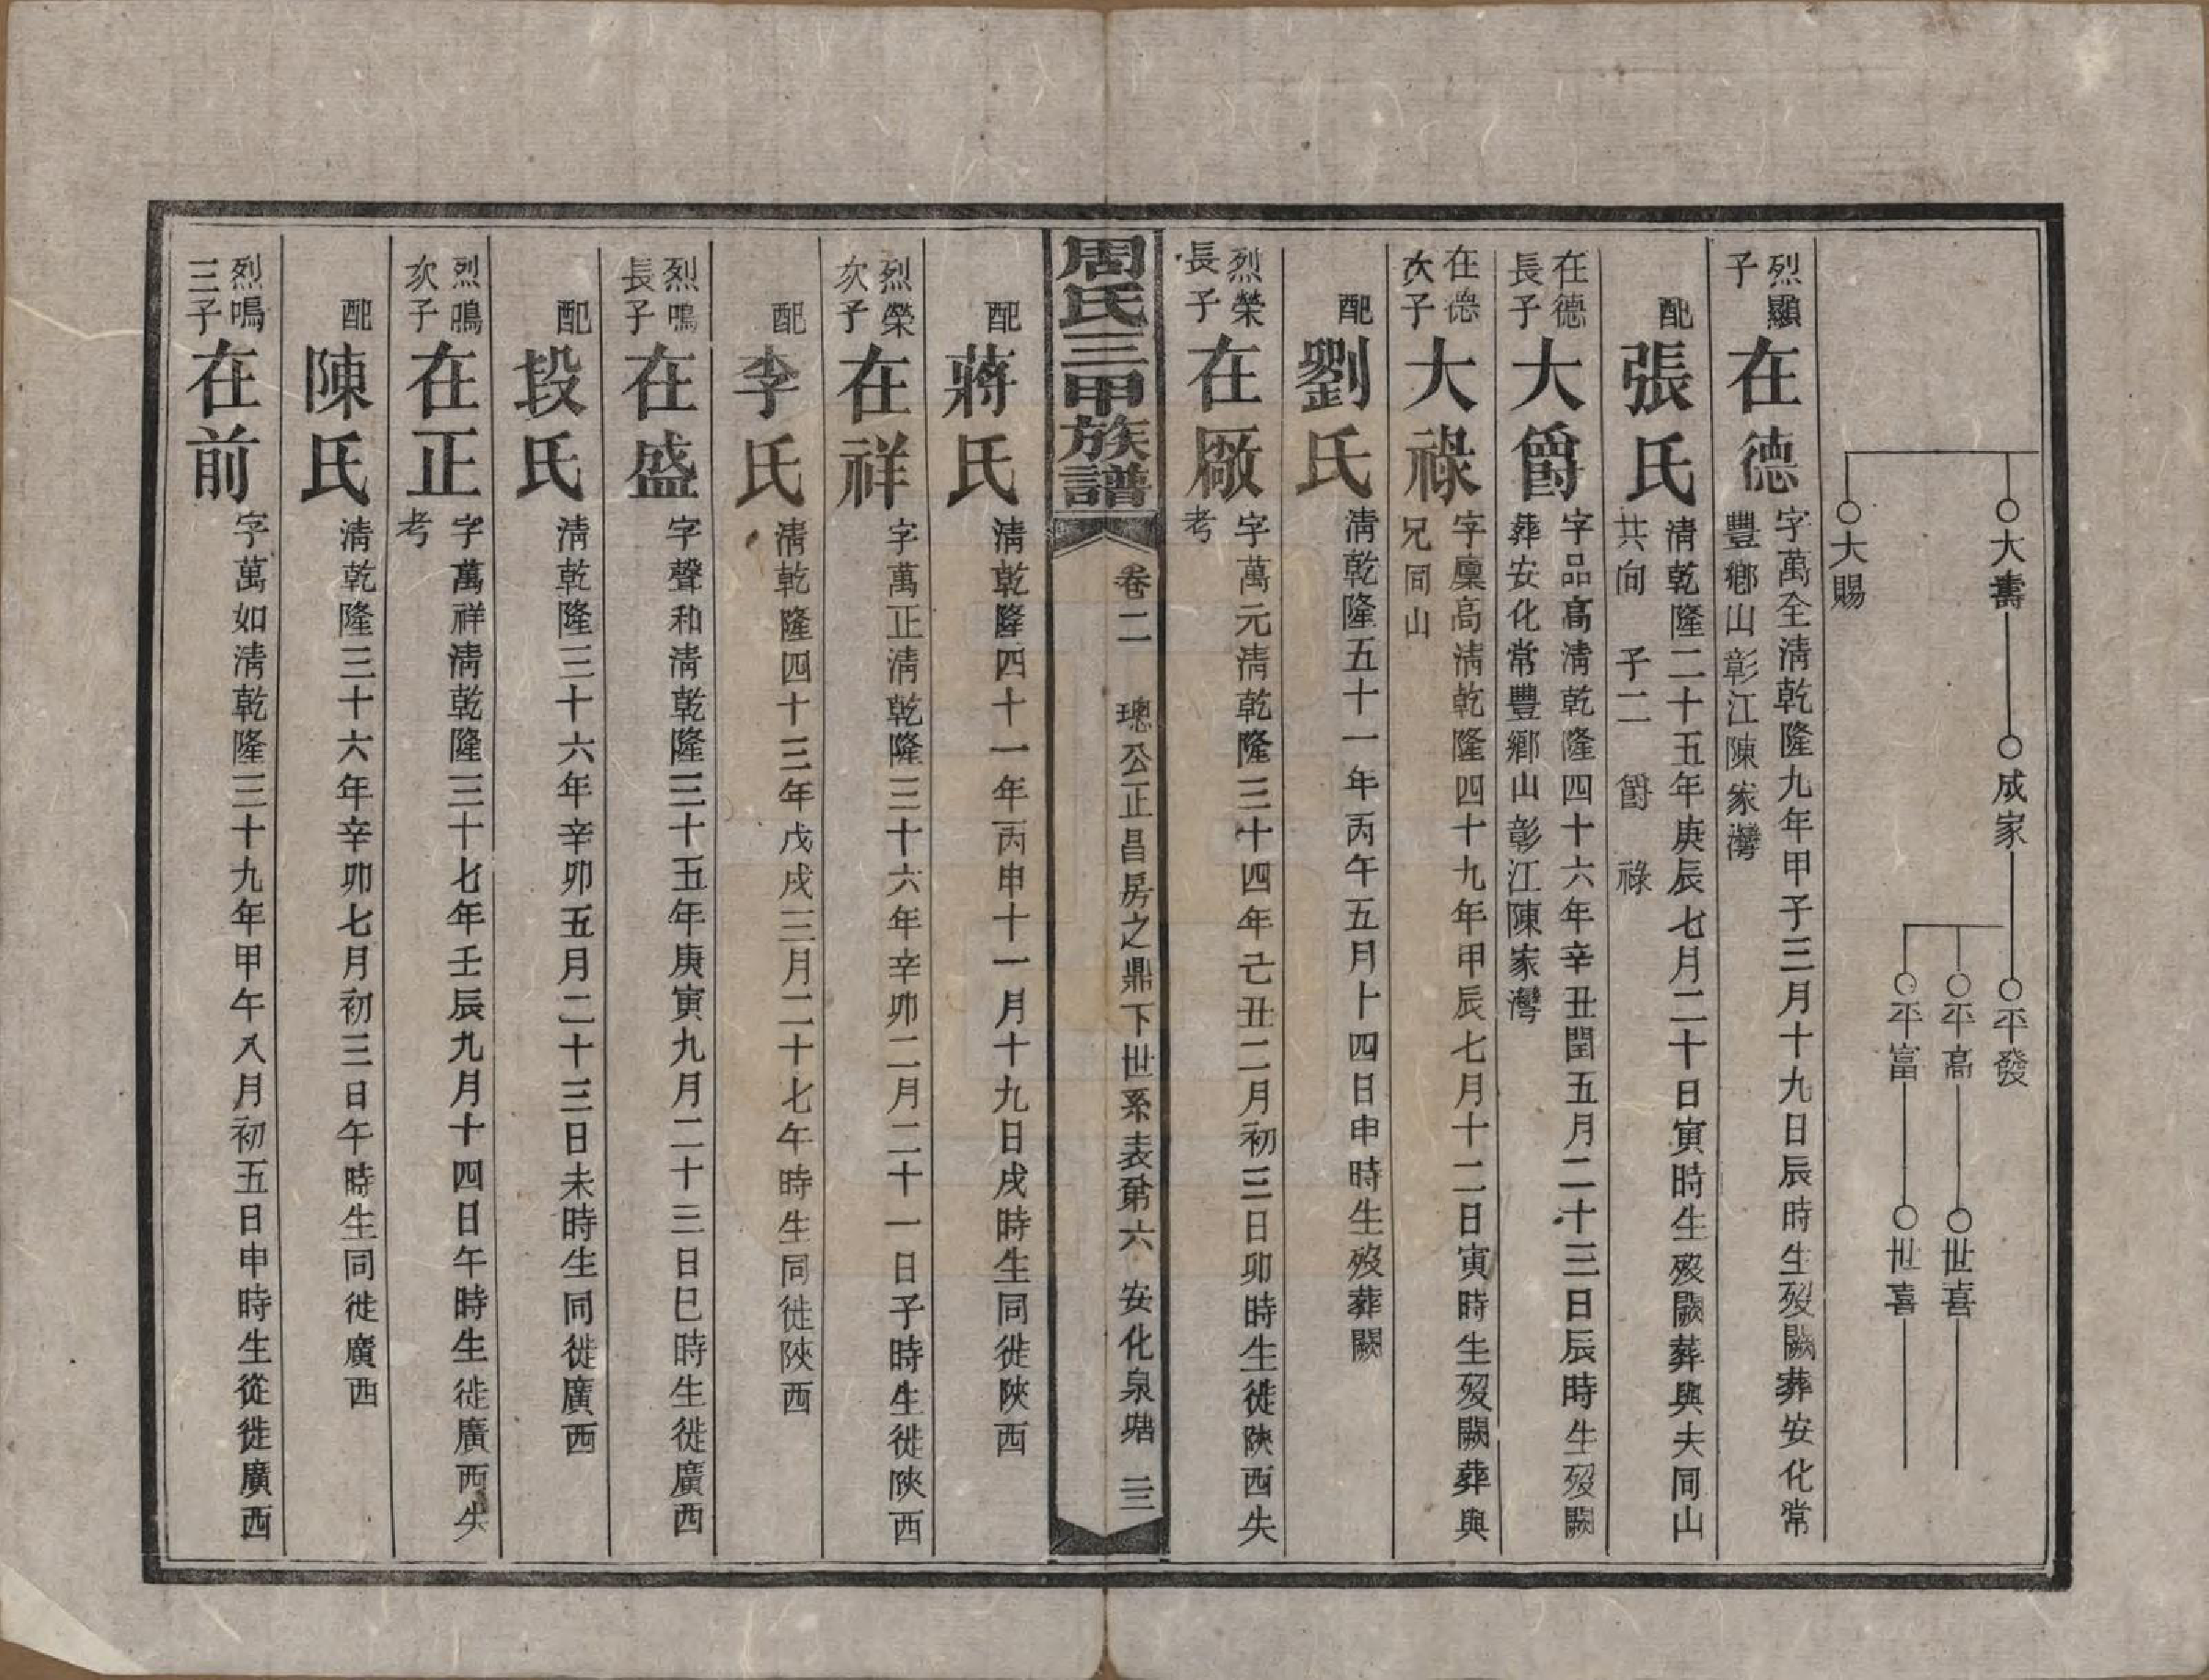 大壽　成家　平發
平高　世喜
平富　世喜
大賜
烈顯
子
在德
字萬全清乾隆九年甲子三月十九日辰時生歿闕葬安化常
豐鄉山彰江陳家灣
配
張氏
清乾隆二十五年庚辰七月二十日寅時生歿闕葬與夫同山
共向　子二　爵　祿
在德
長子
大爵
字品高清乾隆四十六年辛丑閏五月二十三日辰時生歿闕
葬安化常豐鄉山彰江陳家灣
在德
次子
大祿
字廩高清乾隆四十九年甲辰七月十二日寅時生歿闕葬與
兄同山
配
劉氏
清乾隆五十一年丙午五月十四日申時生歿葬闕
烈榮
長子
在廠
字萬元清乾隆三十四年己丑二月初三日卯時生徙陝西失
考
周氏三甲族譜　卷二　璁公正昌房之鼎下世系表第六　安化泉塘　三三
配
蔣氏
清乾隆四十一年丙申十一月十九日戌時生同徙陝西
烈榮
次子
在祥
字萬正清乾隆三十六年辛卯二月二十一日子時生徙陝西
配
李氏
清乾隆四十三年戊戌三月二十七午時生同徙陝西
烈鳴
長子
在盛
字聲和清乾隆三十五年庚寅九月二十三日巳時生徙廣西
配
段氏
清乾隆三十六年辛卯五月二十三日未時生同徙廣西
烈鳴
次子
在正
字萬祥清乾隆三十七年壬辰九月十四日午時生徙廣西失
考
配
陳氏
清乾隆三十六年辛卯七月初三日午時生同徙廣西
烈鳴
三子
在前
字萬如清乾隆三十九年甲午八月初五日申時生從徙廣西